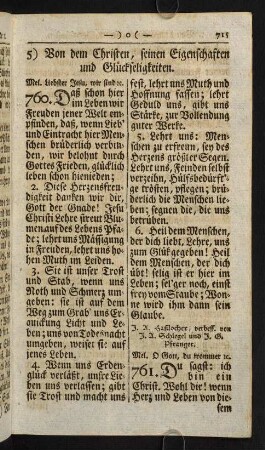 — ) o ( —
715
5) Von dem Christen, seinen Eigenschaften
und Glückseligkeiten.
Mel. Liebster Jesu, wir sind ꝛc.
760. Daß schon hier
im Leben wir
Freuden jener Welt em-
pfinden, daß, wenn Lieb'
und Eintracht hier Men-
schen brüderlich verbin-
den, wir belohnt durch
Gottes Frieden, glücklich
leben schon hienieden;
2. Diese Herzensfreu-
digkeit danken wir dir,
Gott der Gnade! Jesu
Christi Lehre streut Blu-
men auf des Lebens Pfa-
de; lehrt uns Mäßigung
in Freuden, lehrt uns ho-
hen Muth im Leiden.
3. Sie ist unser Trost
und Stab, wenn uns
Noth und Schmerz um-
geben: sie ist uns auf dem
Weg zum Grab' uns Er-
leuchtung Licht und Le-
ben; uns von Todesnacht
umgeben, weiset sie auf
jenes Leben.
4. Wenn uns Erden-
glück verläßt, unsre Lie-
ben uns verlassen; gibt
sie Trost und macht uns
fest, lehrt uns Muth und
Hoffnung fassen; lehrt
Geduld uns, gibt uns
Stärke, zur Vollendung
guter Werke.
5. Lehrt uns: Men-
schen zu erfreun, sey des
Herzens größter Segen.
Lehrt uns, Feinden selbst
verzeihn, Hülfsbedürft'-
ge trösten, pflegen; brü-
derlich die Menschen lie-
ben; segnen die, die uns
betrüben.
6. Heil dem Menschen,
der dich liebt, Lehre, uns
zum Glük gegeben! Heil
dem Menschen, der dich
übt! selig ist er hier im
Leben; sel'ger noch, einst
frey vom Staube; Won-
ne wird ihm dann sein
Glaube.
J. A. Haßlocher, verbess. von
J. A. Schlegel und J. G.
Pfranger.
Mel. O Gott, du frommer ꝛc.
761. Du sagst: ich
bin ein
Christ. Wohl dir! wenn
Herz und Leben von die-
sem